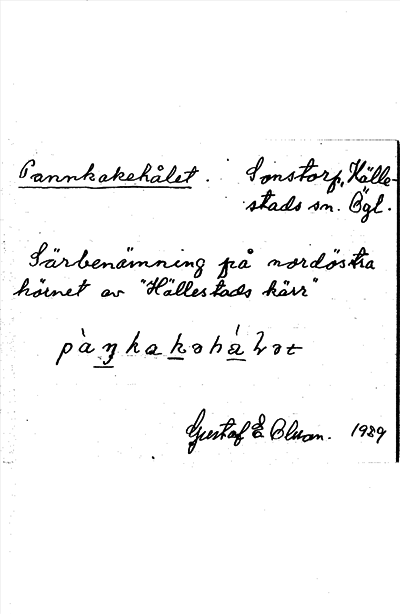 Pannkakehålet. Sonstorp, Hälle-
stads sn. Ögl.
Särbenämning på nordöstra
hörnet av "Hällestads kärr"
Gustaf E Bluan. 1929